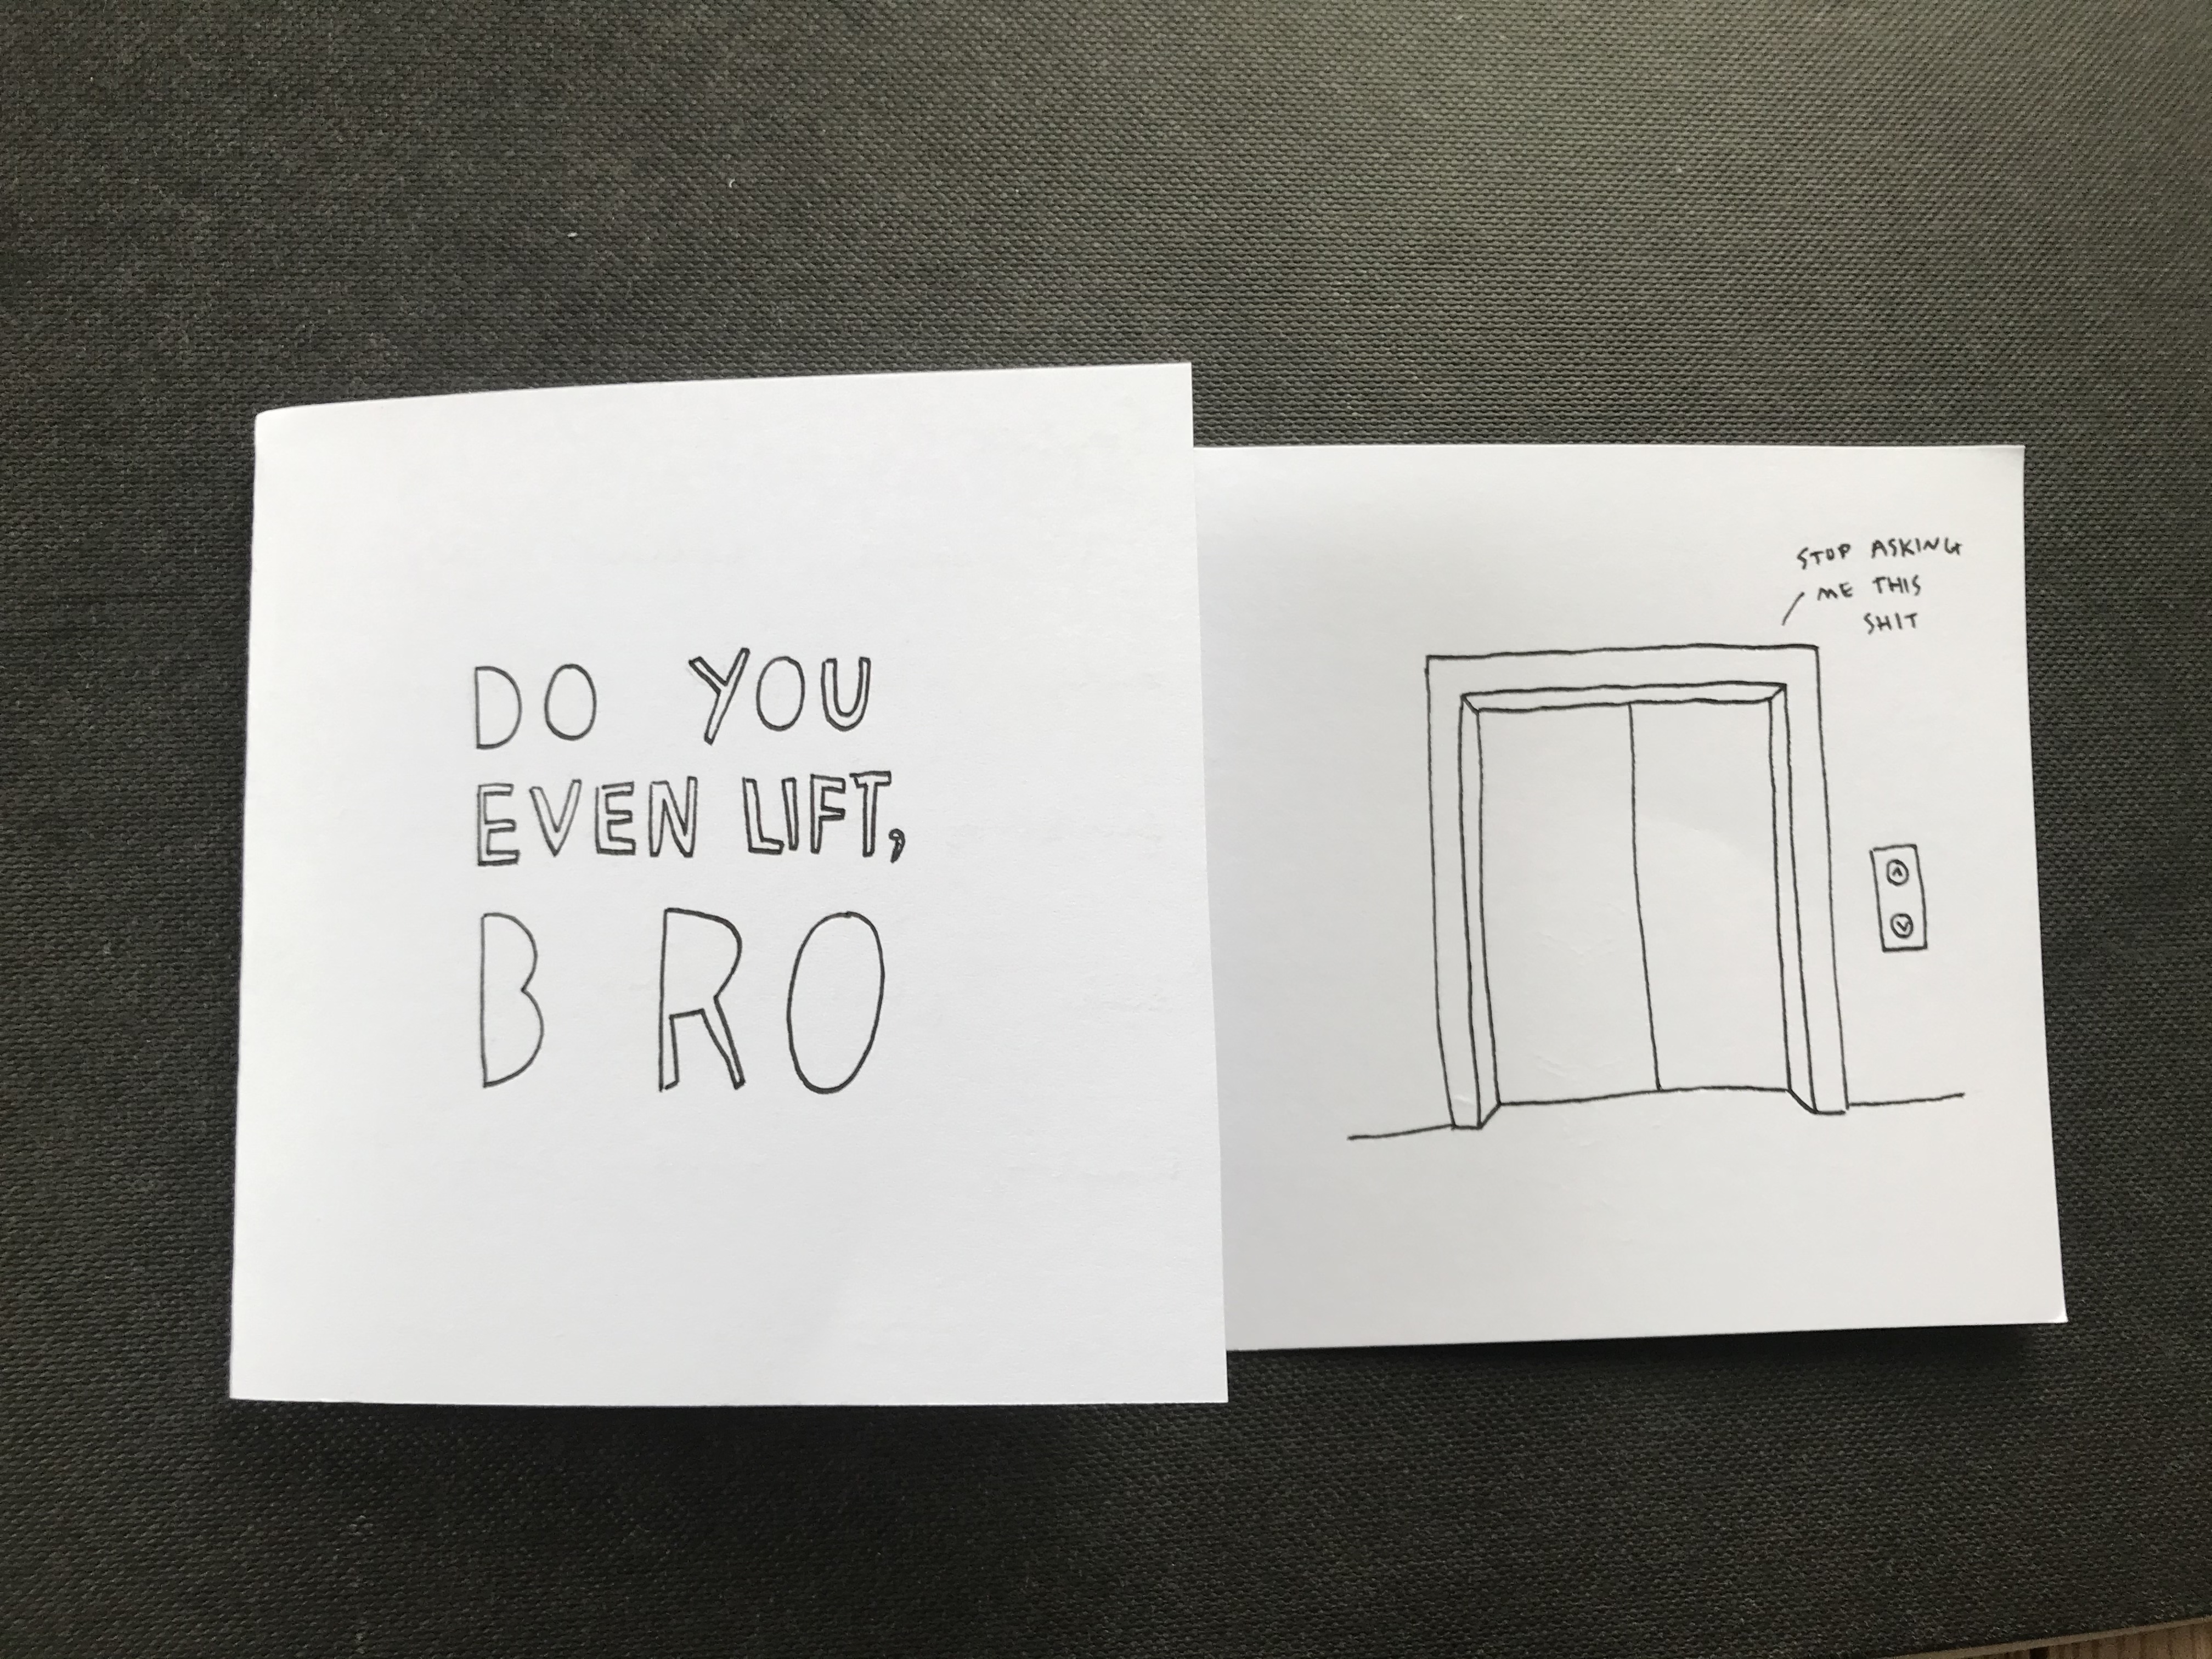 DO YOU
EVEN LIFT,
BRO
STOP ASKING
ME THIS
SHIT